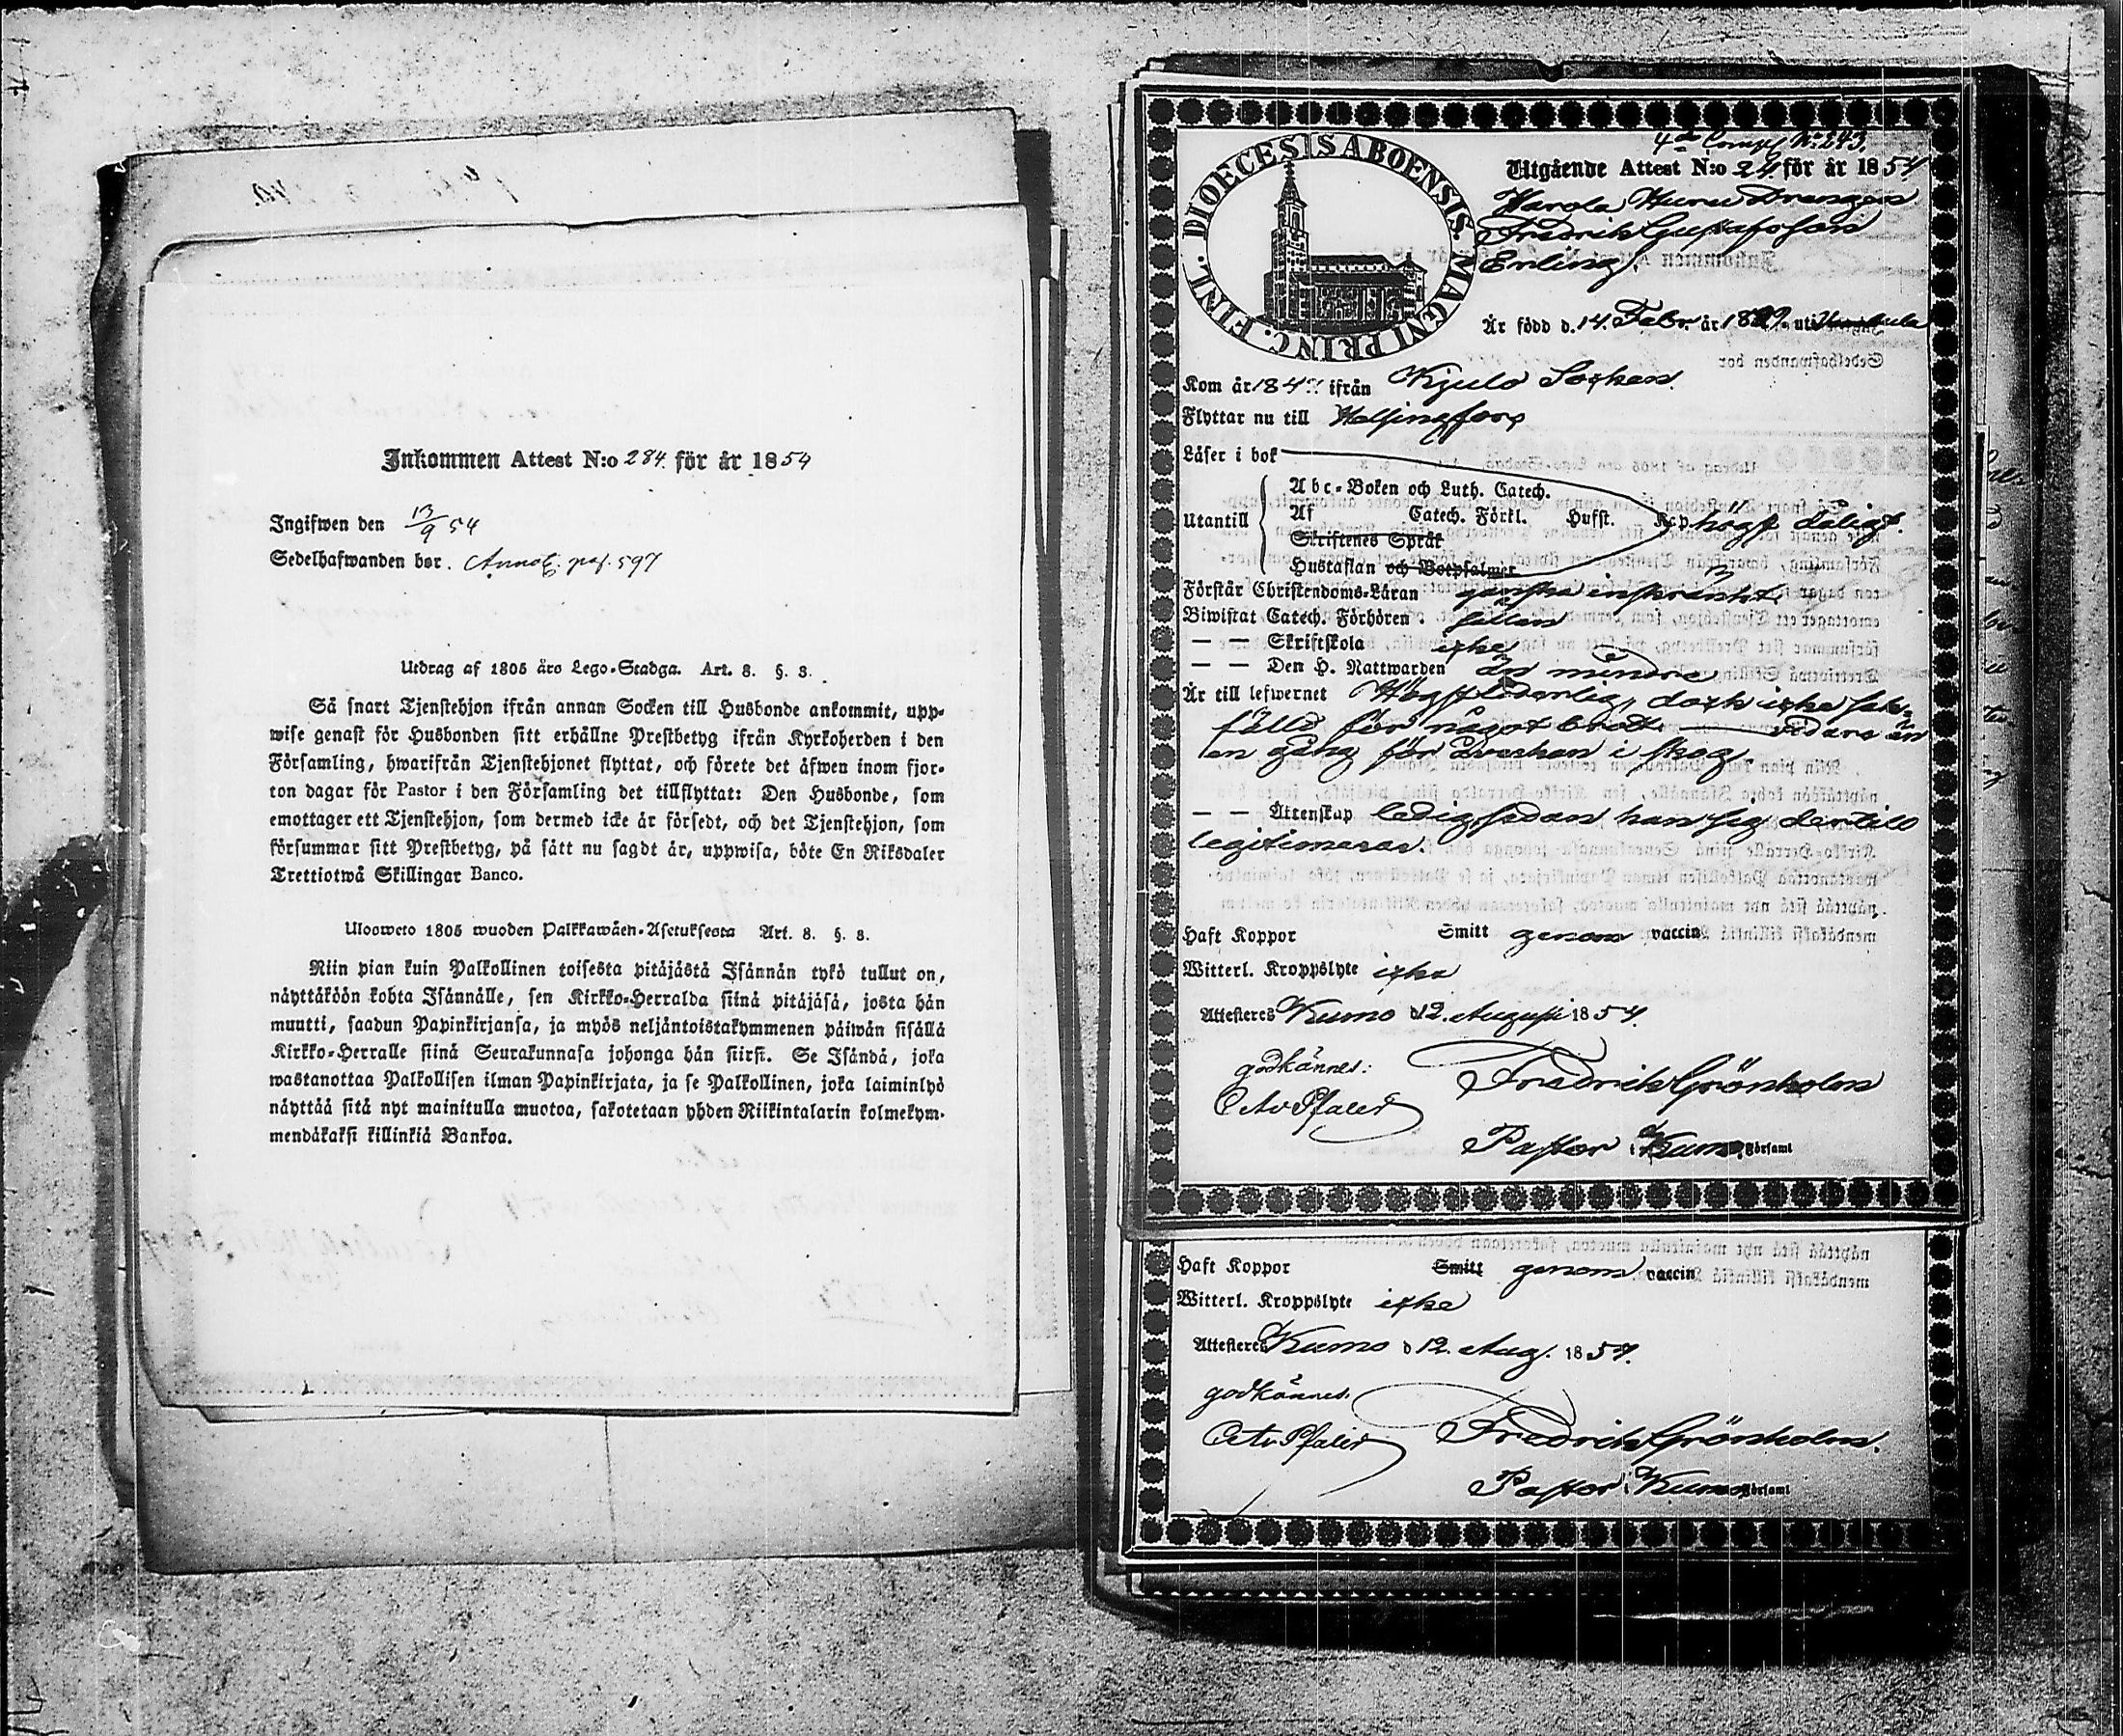 Inkommen Attest N:o 284. för år 1854
Ingifwen den 13/9 54
Sedelhafwanden bor. Annot. pag. 597
Utdrag af 1805 års Lego-Stadga. Art. 8. §. 3.
Så snart Tjenstehjon ifrån annan Socken till Husbonde ankommit, upp-
wise genast för Husbonden sitt erhållne Prestbetyg ifrån Kyrkoherden i den
Församling, hwarifrån Tjenstehjonet flyttat, och förete det äfwen inom fjor-
ton dagar för Pastor i den Församling det tillflyttat: Den Husbonde, som
emottager ett Tjenstehjon, som dermed icke är försedt, och det Tjenstehjon, som
försummar sitt Prestbetyg, på sätt nu sagdt är, uppwisa, böte En Riksdaler
Trettiotwå Skillingar Banco.
Uloosweto 1805 wuoden Palkkawäen-Asetuksesta Art. 8. §. 3.
Niin pian kuin Palkollinen toisesta pitäjästä Isännän tykö tullut on,
näyttäköön kohta Isännälle, sen Kirkko-Herralda siinä pitäjäsä, josta hän
muutti, saadun Papinkirjansa, ja myös neljäntoistakymmenen päiwän sisällä
Kirkko-Herralle siinä Seurakunnasa johonga hän siirsi. Se Isändä, joka
wastanottaa Palkollisen ilman Papinkirjata, ja se Palkollinen, joka laiminlyö
näyttää sitä nyt mainitulla muotoa, sakotetaan yhden Riikintalarin kolmekym-
mendäkaksi killinkiä Bankoa.
4de Comp N:o 243.
DIOECESIS ABOENSIS. MAGNI PRINC. FINL.
Utgående Attest N:o 24 för år 1854
Drengen
Fredrik Gustafsson
Enling.
Är född d. 14. Febr. år 1829. uti
Kom år 184 ifrån Kjulo Socken.
Flyttar nu till Helsingfors
Läser i bok
Abc-Boken och Luth. Catech.
Utantill Af Catech. Förkl. Hufst. Kap. högst dåligt.
Skriftenes Språk
Hustaflan och Botpsalmer
Förstår Christendoms-Läran ganska inskränkt.
Biwistat Catech. Förhören. sällan
— — Skriftskola icke
— — Den H. Nattwarden än mindre
Är till lefwernet Högst liderlig, dock icke sak-
fälld för något brott vidare än
en gång för åverkan i skog.
— — Äktenskap ledig, sedan han sig dertill
legitimerar.
Haft Koppor Smitt genom vaccin
Witterl. Kroppslyte icke
Attesteres Kumo d 12. Augusti 1854.
godkännes: Fredrik Grönholm
Pastor i Kumo Församl
Haft Koppor Smitt genom vaccin
Witterl. Kroppslyte icke
Attesteres Kumo d 12. Aug. 1854.
godkännes. Fredrik Grönholm.
Pastor i Kumo Församl